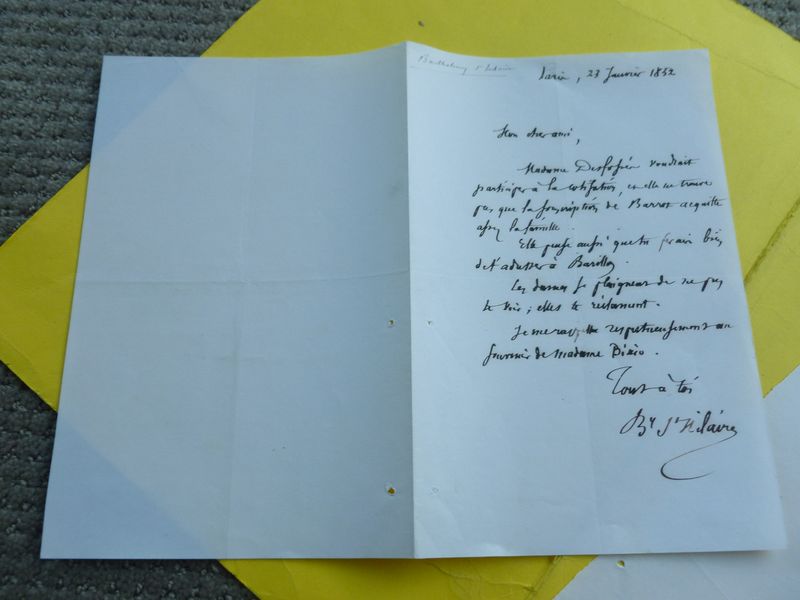 Barthelemy St Hilaire
Paris, 23 Janvier 1852
Mon cher ami,
Madame Desfossés voudrait
participer à la cotisation, et elle ne trouve
pas que la souscription de Barrot acquitte
assez la famille.
Elle pense aussi que tu ferais bien
de t'adresser à
Ces dames se plaignent de ne pas
te voir ; elles te réclament.
Je me rappelle respectueusement au
souvenir de madame Bixio.
Tout à toi
By St Hilaire